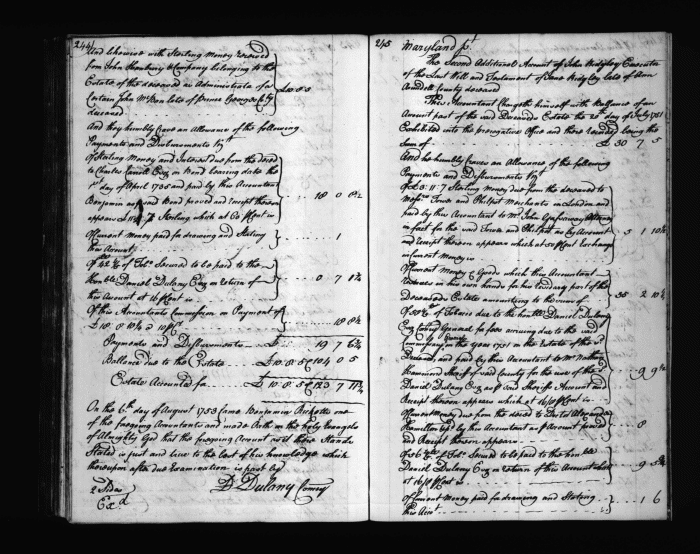 244
And likewise with Sterling Money received
from John Thornbury & Company belonging to the
Estate of the deceased as Administrators of a
Certain John McBon late of Prince Georges Cty
deceased
£ 10 . 8 . 5
And they humbly Crave an Allowance of the following
Payments and Disbursements Vizt
Of Sterling Money and Interest due from the deced
to Charles Carroll Esqr on Bond bearing date the
1st day of April 1735 and paid by this Accountant
Benjamin as said Bond proved and receipt thereon
appears Sterling which at 60 pCent is
18 0 8½
Of Current Money paid for drawing and Stating
this Account
1
of Tobo Secured to be paid to the
Honble Daniel Dulany Esqr on return of
this Account at 16 pCent is
0 7 8¼
Of this Accountants Commission on Payment of
£ 18 . 8 . 10 pCt
18 8½
Payments and Disbursements £ 19 7 6¾
Ballance due to the Estate £ 10 . 8 . 5 £ 104 0 5
Estate Accounted for £ 10 . 8 . 5 £ 123 7 11¾
On the 6th day of August 1753 Came Benjamin Ricketts one
of the foregoing Accountants and made Oath on the holy Evangels
of Almighty God that the foregoing Account as it there Stands
Stated is just and true to the best of his knowledge which
thereupon after due Examination is past by
D Dulany Comsry
2 Sides
Exd
245
Maryland Sct
The Second Additional Account of John Ridgley Executor
of the Last Will and Testament of Jane Ridgley late of Ann
Arundell County deceased
This Accountant Chargeth himself with Ballance of an
Account past of the said Deceaseds Estate the 20th day of July 1751
Exhibited into the prerogative Office and there recorded being the
Sum of £ 30 7 5
And he humbly craves an Allowance of the following
Payments and Disbursements Vizt
Of £3 . 11 . 7 Sterling Money due from the deceased to
Messrs and Philpot Merchants in London and
paid by this Accountant to Mr John Gassaway Attorney
in fact for the said and Philpot as by Account
and receipt thereon appears which at 50 pCent Exchange
in Current Money is
5 1 10½
Of Current Money & Goods which this Accountant
retains in his own hands for his residuary part of the
Deceaseds Estate amounting to the sum of
35 2 10¼
Of of Tobacco due to the honble Daniel Dulany
Esqr Comsry General for fees accruing due to the said
Commissary in the year 1751 on the Estate of the said
Deceased and paid by this Accountant to Mr Nathan
Hammond Sheriff of said County for the use of the sd
Daniel Dulany Esqr as p said Sheriffs Account and
Receipt thereon appears which at 16/8 pCent is
9 9½
Of Current Money due from the deced to Doctor Alexander
Hamilton & by this Accountant as p Account proved
and Receipt thereon appears
8
Of Tobo Secured to be paid to the honble
Daniel Dulany Esqr on return of this Account
at 16/8 pCent is
9 5¾
Of Current Money paid for drawing and Stating
this Acct
1 6